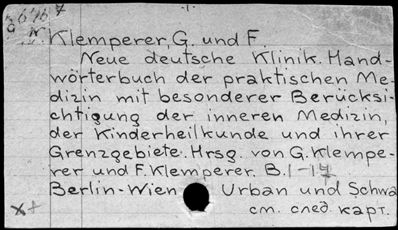 Klemperer, G. und F.
Neue deutsche Klinik. Hand-
wörterbuch der praktischen Me-
dizin mit besonderer Berücksi-
chtigung der inneren Medizin,
der Kinderheilkunde und ihrer
Grenzgebiete. Hrsg. von G. Klempe-
rer und F. Klemperer. B. 1-17
Berlin-Wien Urban und Schwa
см. след. карт.